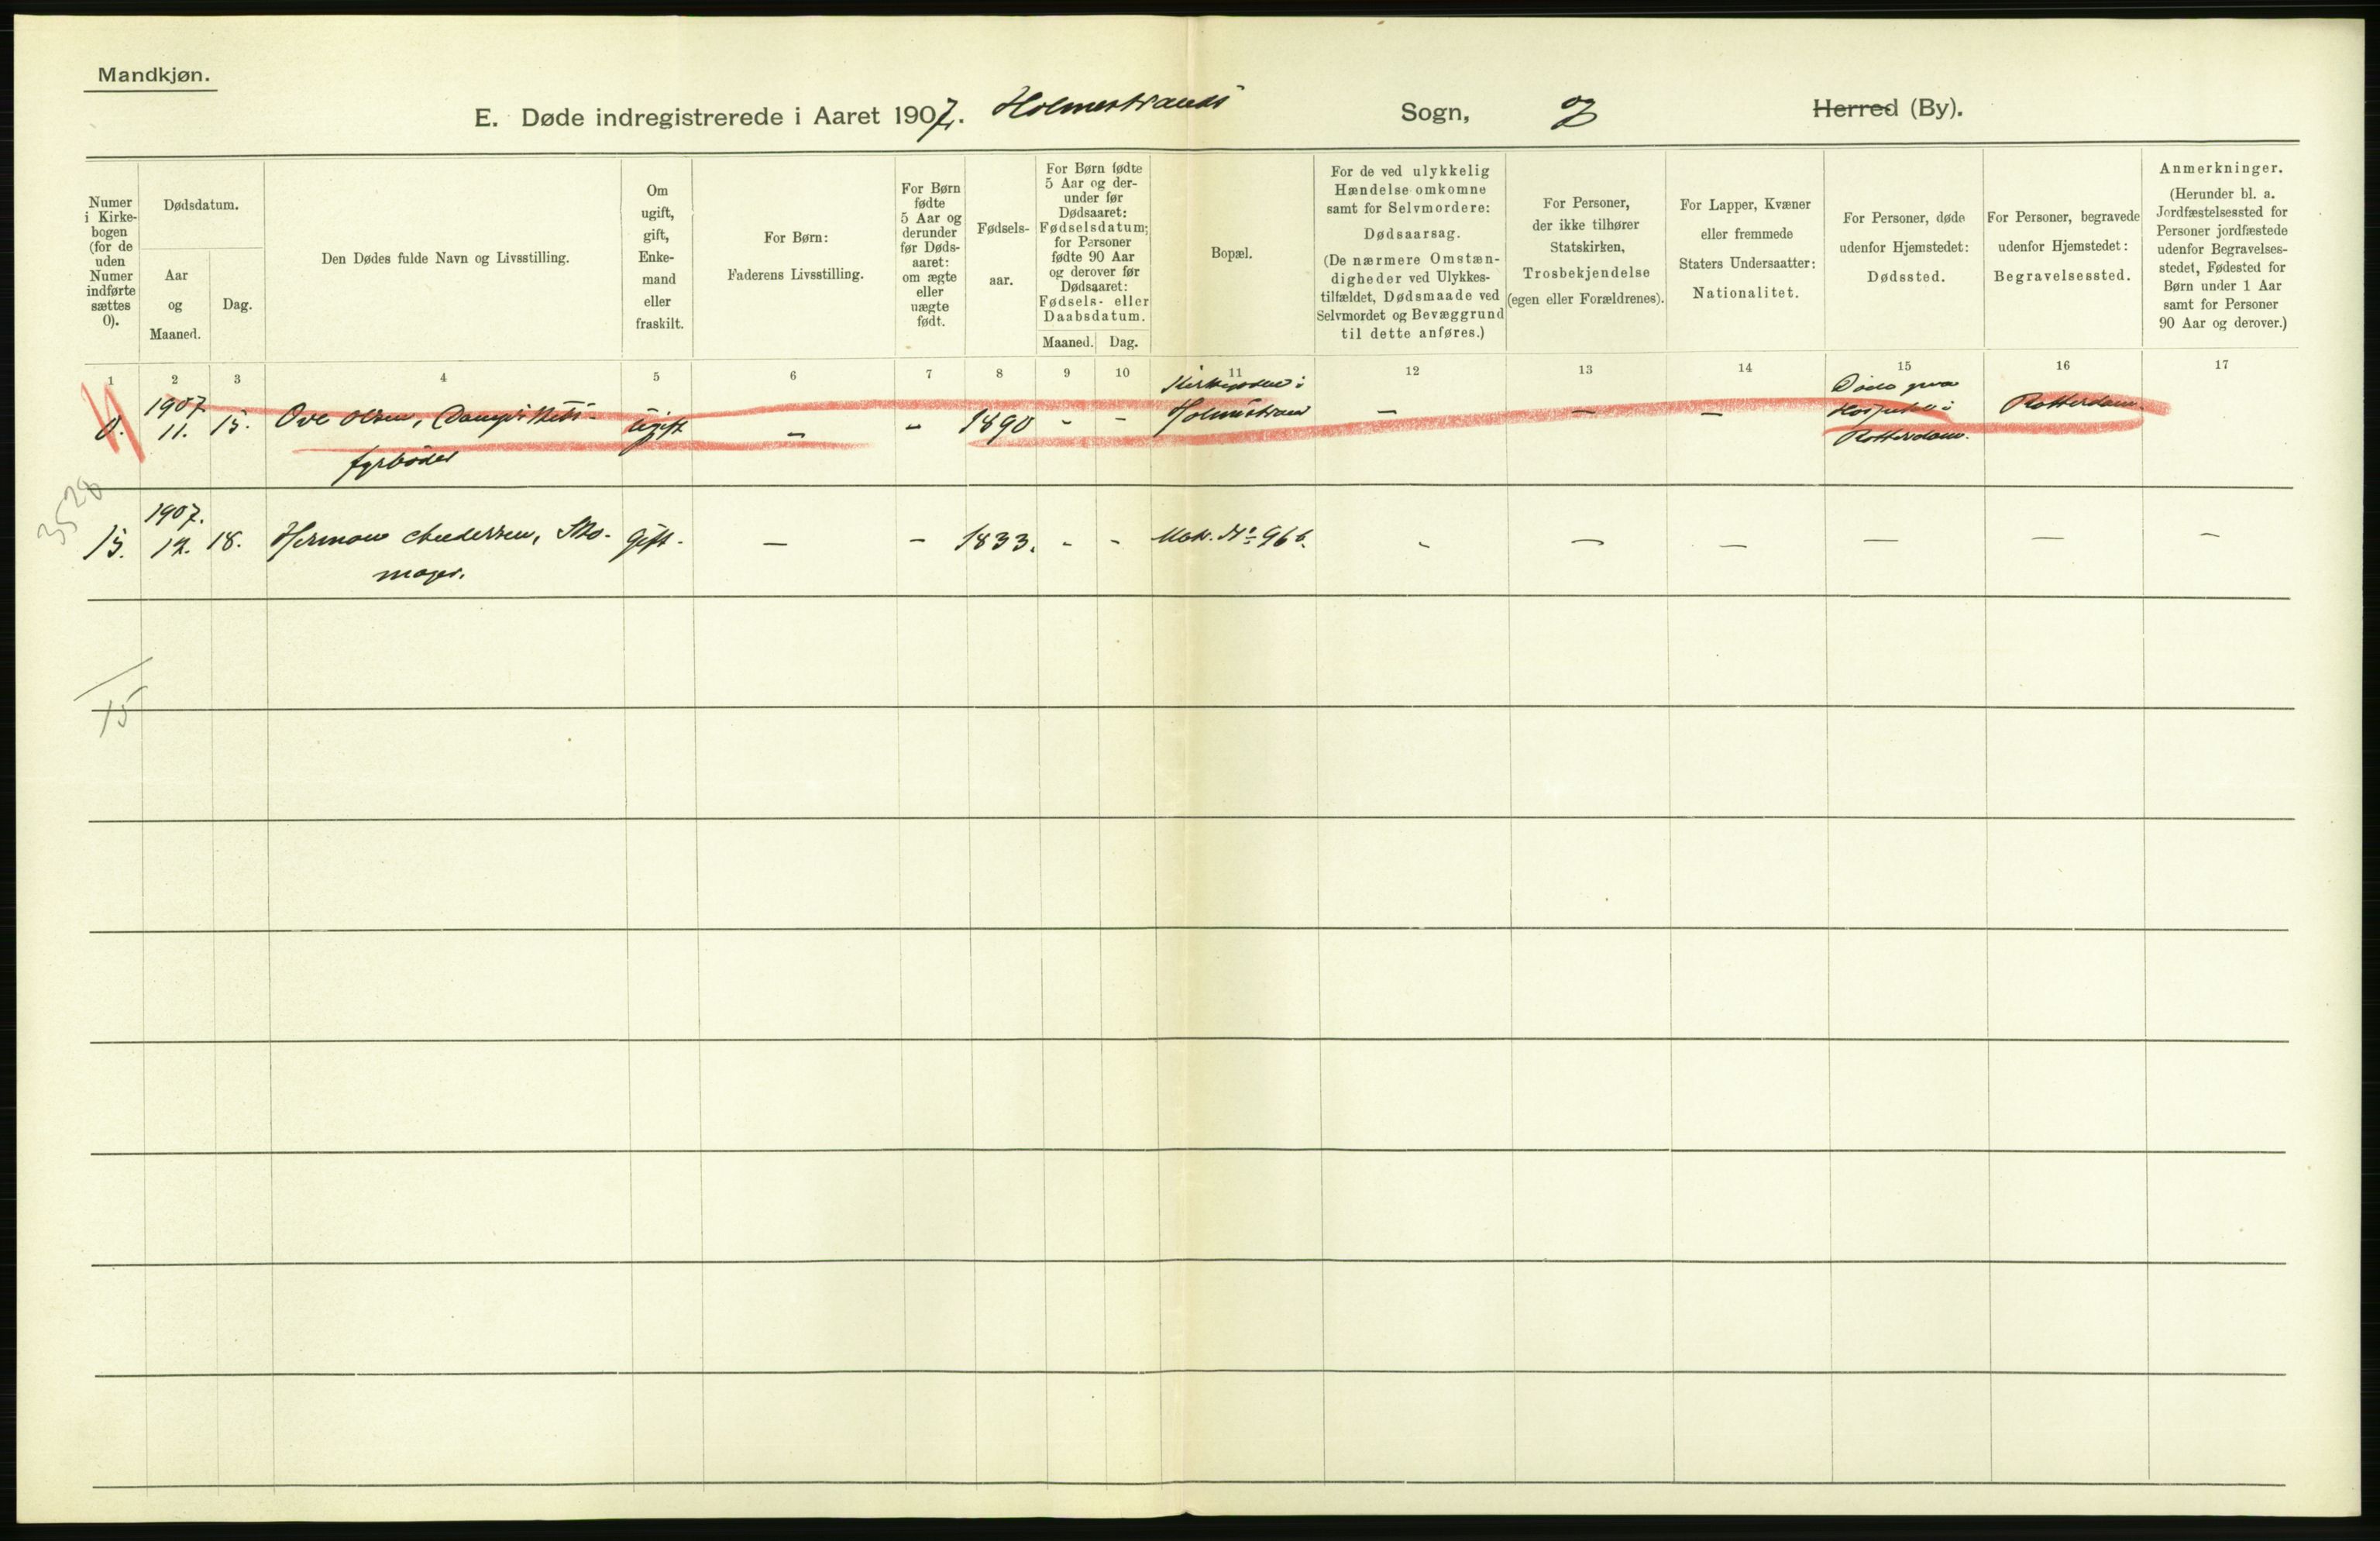 Mandkjøn.
E. Døde indregistrerede i Aaret 1907. Holmestrands Sogn, og Herred (By).
Numer
i Kirke-
bogen
(for de
uden
Numer
indførte
sættes
0).
Dødsdatum.
Aar
og
Maaned.
Dag.
Den Dødes fulde Navn og Livsstilling.
Om
ugift,
gift,
Enke-
mand
eller
fraskilt.
For Børn:
Faderens Livsstilling.
For Børn
fødte
5 Aar og
derunder
før Døds-
aaret:
om ægte
eller
uægte
født.
Fødsels-
aar.
For Børn fødte
5 Aar og der-
under før
Dødsaaret:
Fødselsdatum;
for Personer
fødte 90 Aar
og derover før
Dødsaaret:
Fødsels- eller
Daabsdatum.
Maaned. Dag.
Bopæl.
For de ved ulykkelig
Hændelse omkomne
samt for Selvmordere:
Dødsaarsag.
(De nærmere Omstæn-
digheder ved Ulykkes-
tilfældet, Dødsmaade ved
Selvmordet og Bevæggrund
til dette anføres.)
For Personer,
der ikke tilhører
Statskirken,
Trosbekjendelse
(egen eller Forældrenes).
For Lapper, Kvæner
eller fremmede
Staters Undersaatter:
Nationalitet.
For Personer, døde
udenfor Hjemstedet:
Dødssted.
For Personer, begravede
udenfor Hjemstedet:
Begravelsessted.
Anmerkninger.
(Herunder bl. a.
Jordfæstelsessted for
Personer jordfæstede
udenfor Begravelses-
stedet, Fødested for
Børn under 1 Aar
samt for Personer
90 Aar og derover.)
1 2 3 4 5 6 7 8 9 10 11 12 13 14 15 16 17
0. 1907
11. 15. Ove Olsen, Dampskibs-
fyrbøder
Ugift - - 1890 - - i
Holmestrand
- - - Døde paa
Hospital i
Rotterdam.
Rotterdam.
3528
15. 1907.
12. 18. Herman Andersen, Sko-
mager.
Gift. - - 1833. - - Matr. No 966. - - - - - -
15